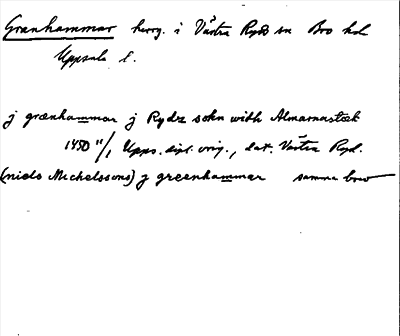 Granhammar herrg. i Västra Ryds sn Bro hd
Uppsala l.
j grænhammar j Rydz sokn widh Almarnastæk
1450 11/1 Upps. dipl. orig., dat. Västra Ryd.
(niels Michelssons) j greenhammar samma brev